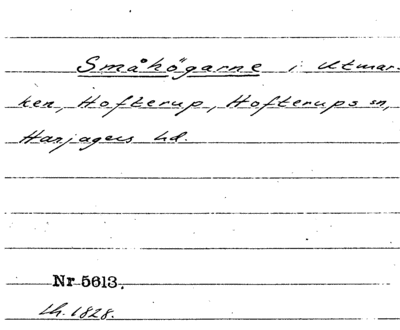 Småhögarne i Utmar-
ken, Hofterup, Hofterups sn,
Harjagers hd.
Nr 5613.
Lh. 1828.